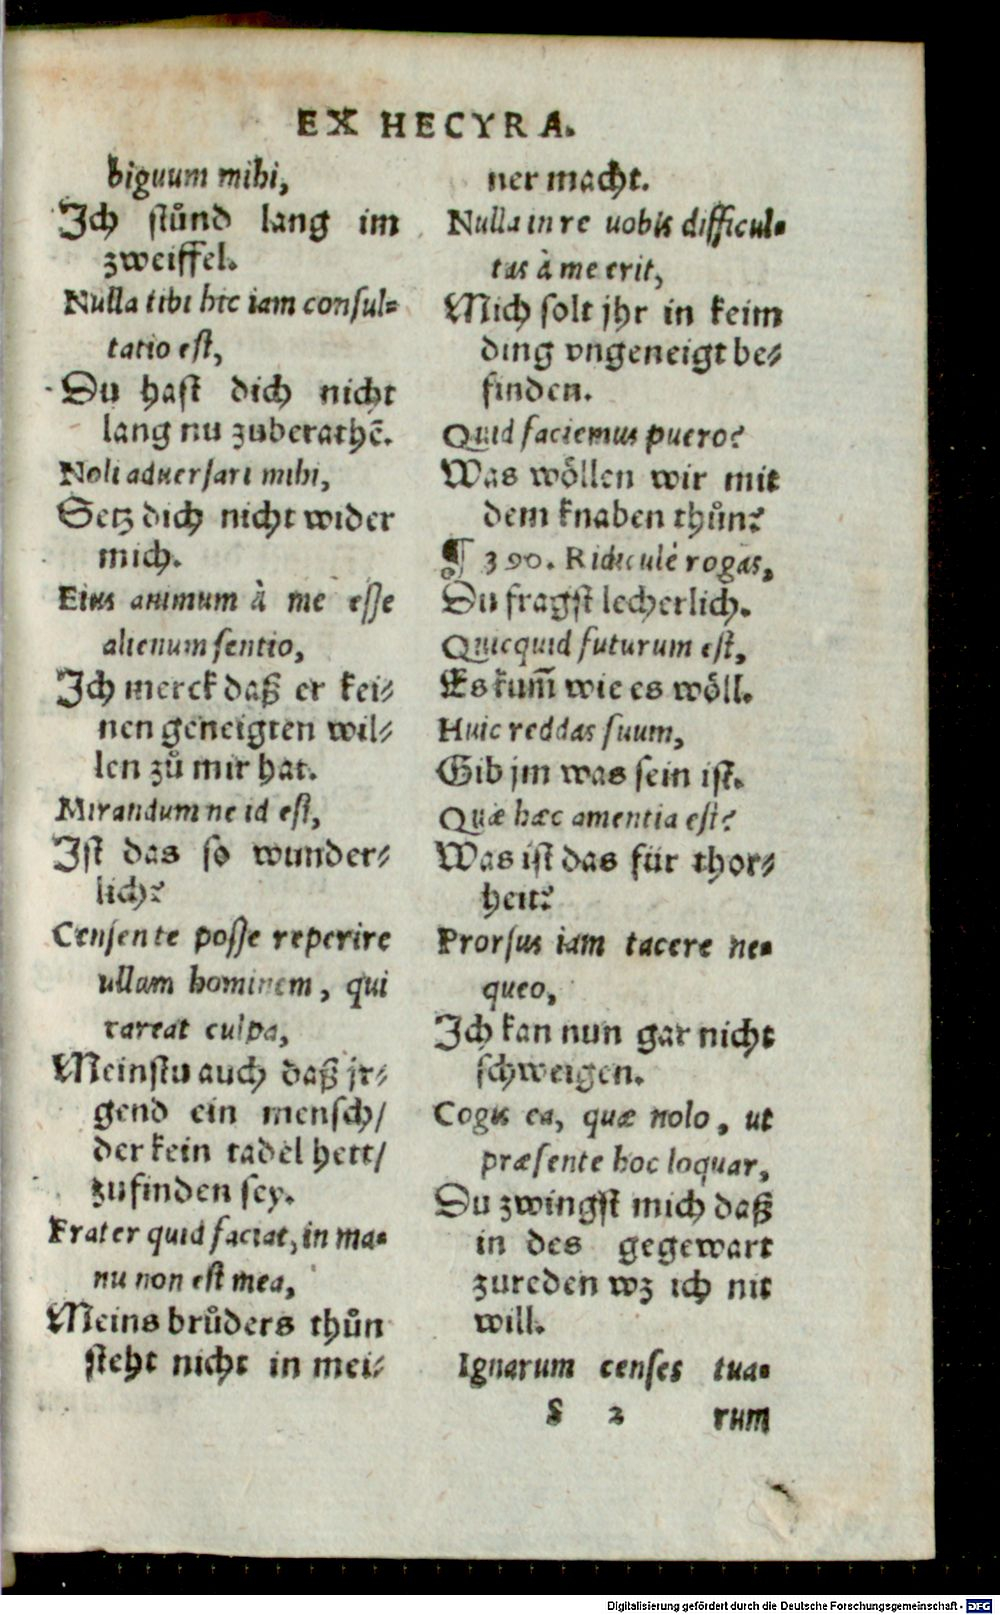 EX HECYRA.
biguum mihi,
Ich stůnd lang im
zweiffel.
Nulla tibi hic iam consul-
tatio est,
Du hast dich nicht
lang nu zuberathē.
Noli aduersari mihi,
Setz dich nicht wider
mich.
Eius animum à me esse
alienum sentio,
Ich merck daß er kei-
nen geneigten wil-
len zů mir hat.
Mirandum ne id est,
Ist das so wunder-
lich?
Censen te posse reperire
ullam hominem, qui
careat culpa,
Meinstu auch daß jr-
gend ein mensch/
der kein tadel hett/
zufinden sey.
Frater quid faciat, in ma-
nu non est mea,
Meins brůders thůn
steht nicht in mei-
ner macht.
Nulla in re uobis difficul-
tas à me erit,
Mich solt jhr in keim
ding vngeneigt be-
finden.
Quid faciemus puero?
Was wöllen wir mit
dem knaben thůn?
¶ 390. Ridiculè rogas,
Du fragst lecherlich.
Quicquid futurum est,
Es kum̄ wie es wöll.
Huic reddas suum,
Gib jm was sein ist.
Quæ hæc amentia est?
Was ist das für thor-
heit?
Prorsus iam tacere ne-
queo,
Ich kan nun gar nicht
schweigen.
Cogis ea, quæ nolo, ut
præsente hoc loquar,
Du zwingst mich daß
in des gegewart
zureden wz ich nit
will.
Ignarum censes tua-
S 2 rum
Digitalisierung gefördert durch die Deutsche Forschungsgemeinschaft - DFG